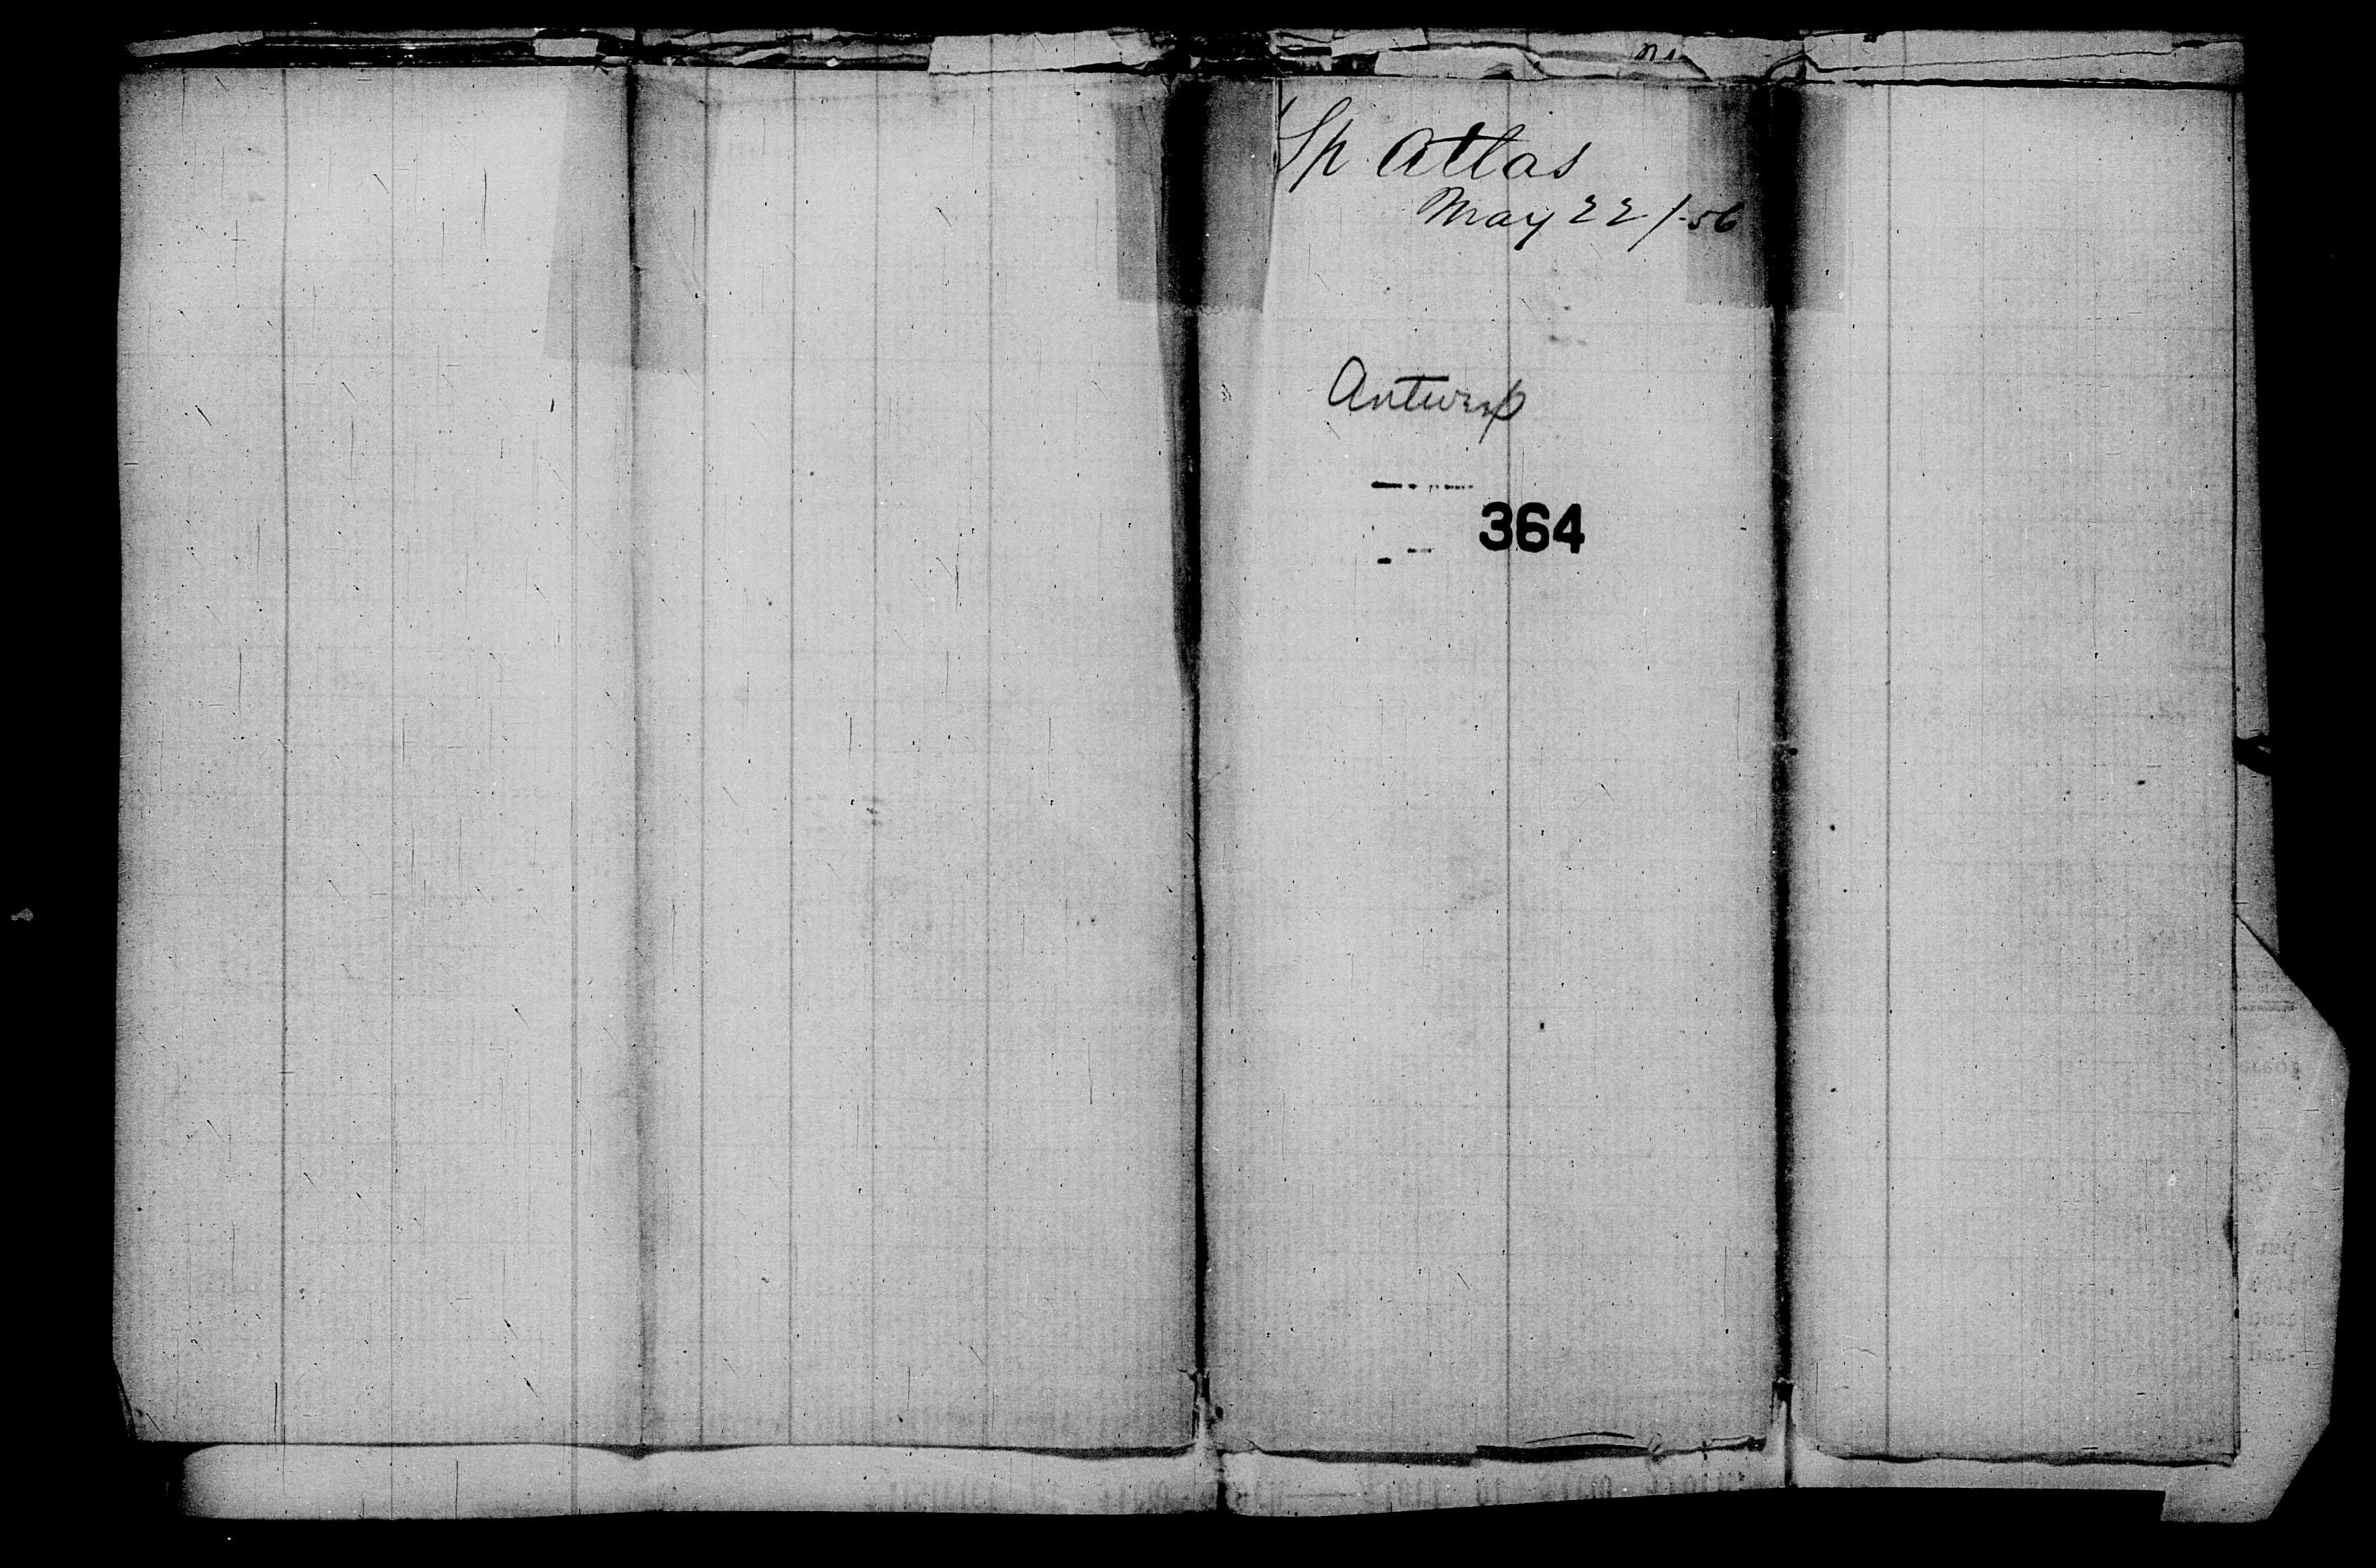 Sp Atlas
May 22/-56
Antwerp
364